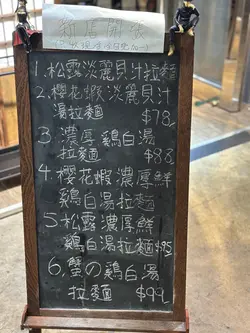 1.松露淡麗貝汁拉麵
2.櫻花蝦淡麗貝汁
湯拉麵 $78
3.濃厚鷄白湯
拉麵 $88
4.櫻花蝦濃厚鮮
鷄白湯拉麵
5.松露濃厚鮮
鷄白湯拉麵$95
6.蟹の鷄白湯
拉麵 $99